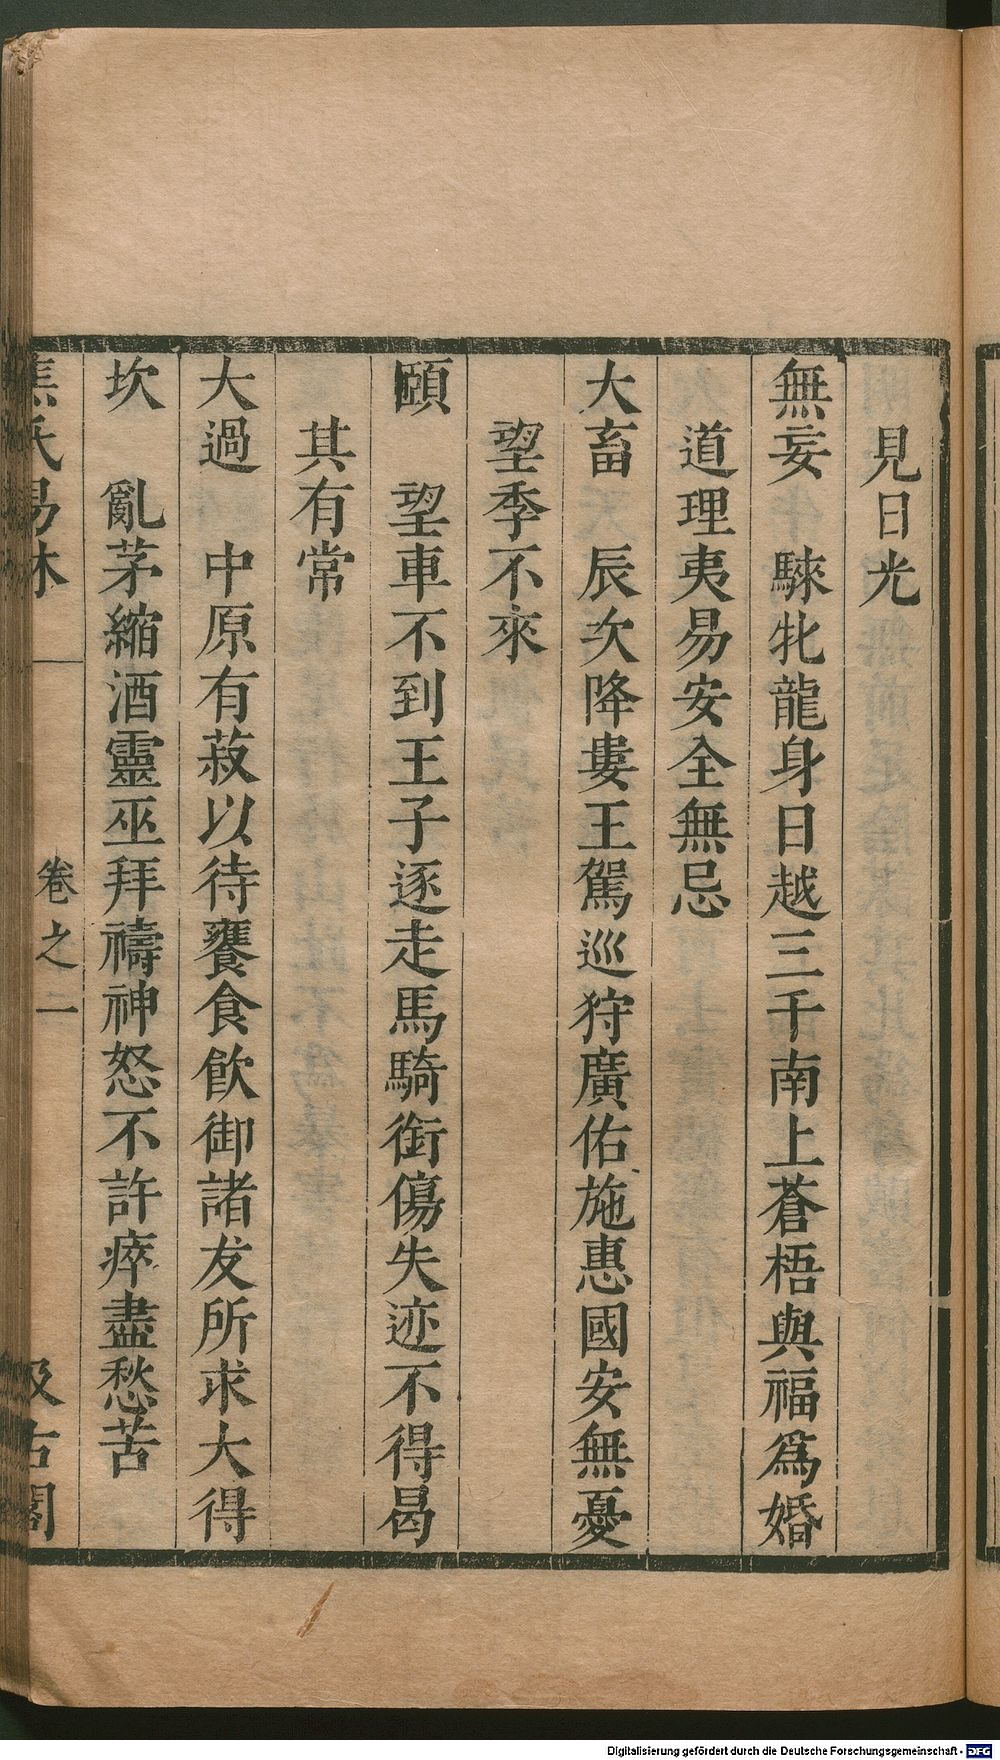 見日光
無妄　騋牝龍身日越三千南上蒼梧與福爲婚
道理夷易安全無忌
大畜　辰次降婁王駕巡狩廣佑施惠國安無憂
望季不來
頤　望車不到王子逐走馬騎銜傷失迹不得曷
其有常
大過　中原有菽以待饔食飲御諸友所求大得
坎　亂茅縮酒靈巫拜禱神怒不許瘁盡愁苦
焦氏易林　卷之二　汲古閣
Digitalisierung gefördert durch die Deutsche Forschungsgemeinschaft - DFG